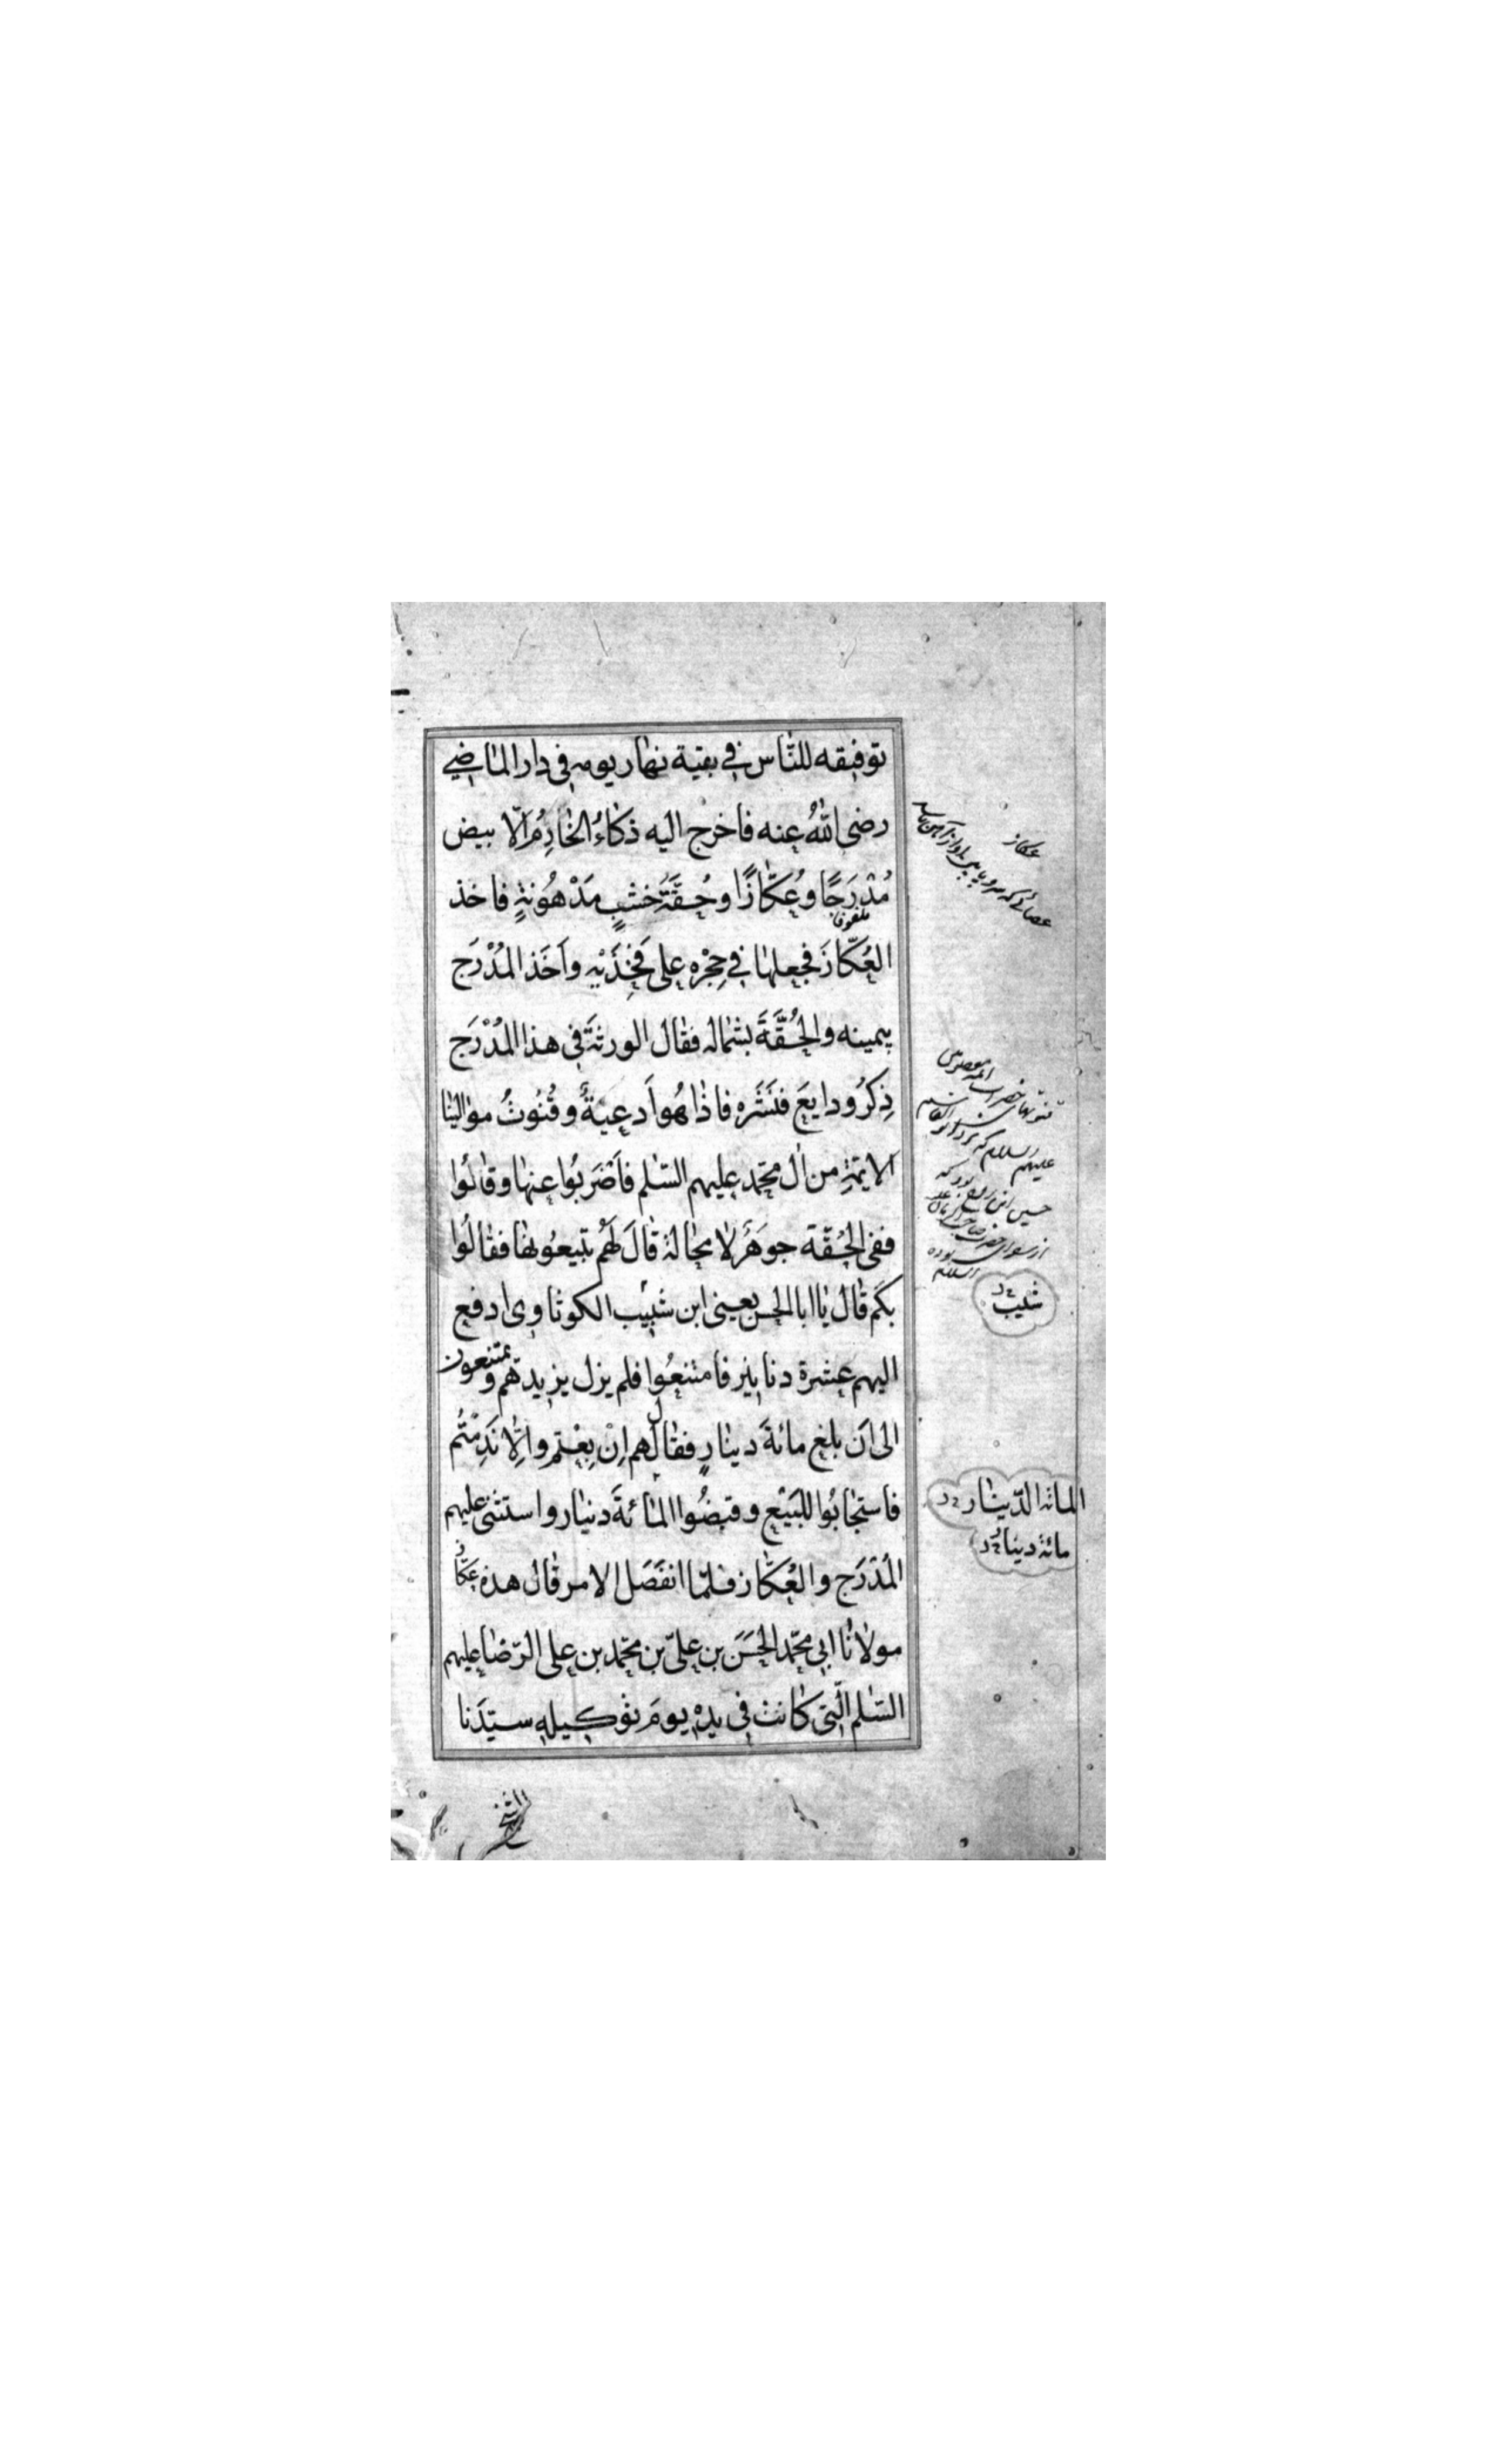 توفيقه للنّاس في بقية نهار يومه في دار الماضي
رضي اللهُ عنه فاخرج اليه ذكاءُ الخادِمُ الّا بيض
مُدْرَجًا وعُكّازًا وحُقّةَ خشبٍ مَدْهُونةٍ فاخذ
ملفوفا
العُكّازَ فجعلها في حِجْرِه على فَخِذَيْهِ واَخَذ المُدْرَج
بيمينه والحُقَّةَ بشماله فقال الورثةَ في هذا المُدْرَج
ذِكرُ ودايعَ فنَشَره فاذا هُوا َدعِيَةٌ وقُنُوتُ موالينا
الايمّةِ من اٰل محمّد عليهم السّلم فاَضْرَبُوا عنها وقالُوا
ففي الحُقّة جوهَرٌ لا محالة قالَ لَهُم تبيعُونها فقالُوا
بكَم قال يا ابا الحسن يعني ابن شَبيْب الكوثاوي ادفع
اليهم عشرة دنانير فامتنعُوا فلم يزل يزيدهم ويمتنعون
الى اَن بلغ مائةَ دينارٍ فقال لهم اِنْ بِعْتم واِلّا نَدِمْتُم
فاستجابُوا للبَيْع وقبضُوا المائةَ دينار واستثنى عليهم
المُدْرَج والعُكّاز فلمّا انفَصَل الامر قال هذه عكّاز
مولانا ابي محمّد الحَسَن بن عليّ بن محمّد بن علي الرّضا عليهم
السّلم الّتي كانت في يدِه يومَ توكيلِه سيّدَنا
عكاز
عليهم السلام كه نزد ابو القاسم
حسين ابن روح بود كه
السلام
شليب
المائة الدّينار
مائة دينار